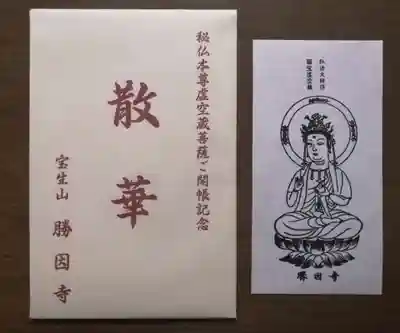 秘仏本尊虚空蔵菩薩ご開帳記念
散華
宝生山 勝因寺
勝因寺